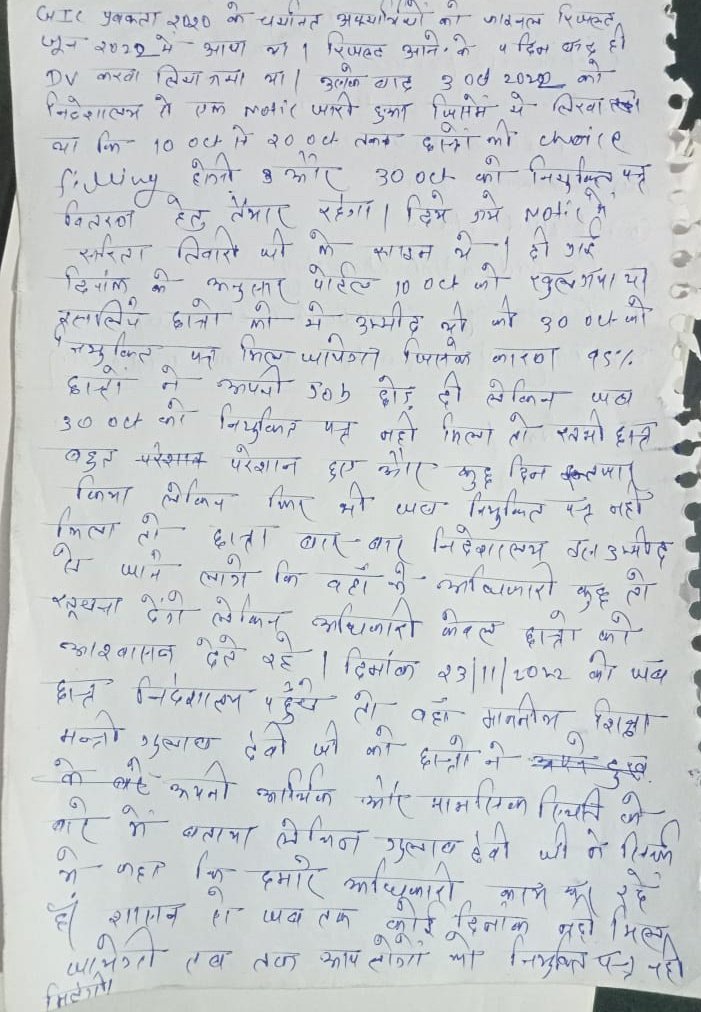 GIC प्रवक्ता 2020 के चयनित अभ्यर्थियों का फाइनल रिजल्ट
जून 2022 में आया था । रिजल्ट आने के 4 दिन बाद ही
DV करवा लिया गया था । उसके बाद 3 oct 2022 को
निदेशालय से एक Notic जारी हुआ जिसमें ये लिखा
था कि 10 oct से 20 oct तक छात्रों की choice
filling होगी और 30 oct को नियुक्ति पत्र
वितरण हेतु तैयार रहेगा । दिये गये Notic में
सरिता तिवारी जी के साइन थे । दी गई
दिनांक के अनुसार पोर्टल 10 oct को खुल गया था
इसलिये छात्रों को ये उम्मीद थी की 30 oct को
नियुक्ति पत्र मिल जायेगा जिसके कारण 95%
छात्रों ने अपनी Job छोड़ दी लेकिन जब
30 oct को नियुक्ति पत्र नहीं मिला तो सभी छात्र
बहुत परेशान हुए और कुछ दिन इन्तजार
किया लेकिन फिर भी जब नियुक्ति पत्र नहीं
मिला तो छात्र बार-बार निदेशालय इस उम्मीद
से जाने लगे कि वहाँ के अधिकारी कुछ तो
सूचना देंगे लेकिन अधिकारी केवल छात्रों को
आश्वासन देते रहे । दिनांक 23/11/2022 को जब
छात्र निदेशालय पहुँचे तो वहाँ माननीय शिक्षा
मन्त्री गुलाब देवी जी को छात्रों ने
अपनी आर्थिक और मानसिक स्थिति के
बारे में बताया लेकिन गुलाब देवी जी ने सिर्फ
ये कहा कि हमारे अधिकारी काम कर रहे
हैं शासन से जब तक कोई दिनांक नहीं मिल
जायेगी तब तक आप लोगों को नियुक्ति पत्र नहीं
मिलेगा।